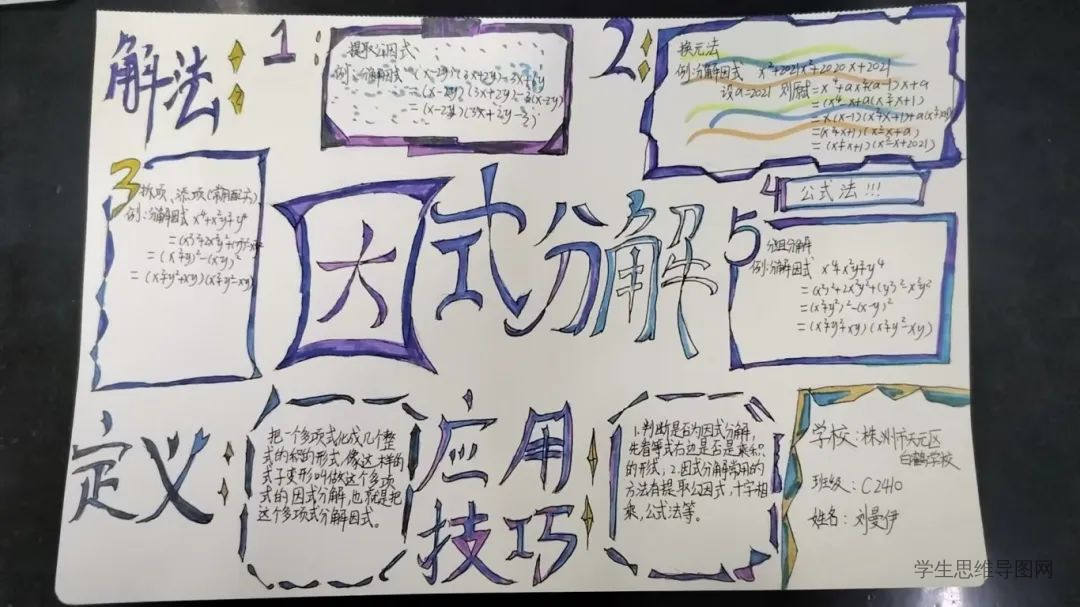 解法
1:
提取公因式
例:分解因式
= (x-2y)(3x+2y-
2
换元法
例:分解因式 x⁴+2021x²+2020x+2021
设a=2021 则原式=x⁴+ax²+(a-1)x+a
=(x⁴-x)+a(x²+x+1)
=x(x-1)(x²+x+1)+a(x²+x+1)
=(x²+x+1)(x²-x+a)
=(x²+x+1)(x²-x+2021)
3
拆项、添项(常用配方)
例:分解因式 x⁴+x²y²+y⁴
=(x²+y²)²-(xy)²
=(x²+y²+xy)(x²+y²-xy)
因式分解
4
公式法!!!
5
分组分解
例:分解因式 x⁴+x²y²+y⁴
=(x²)²+2x²y²+(y²)²-x²y²
=(x²+y²)²-(xy)²
=(x²+y²+xy)(x²+y²-xy)
定义
把一个多项式化成几个整
式的积的形式,像这样的
式子变形叫做这个多项
式的因式分解,也就是把
这个多项式分解因式。
应用
技巧
1.判断是否为因式分解,
先看等式右边是否是乘积
的形式;2.因式分解常用的
方法有提取公因式,十字相
乘,公式法等。
学校:株洲市天元区
白鹤学校
班级:C2410
姓名:刘曼伊
学生思维导图网